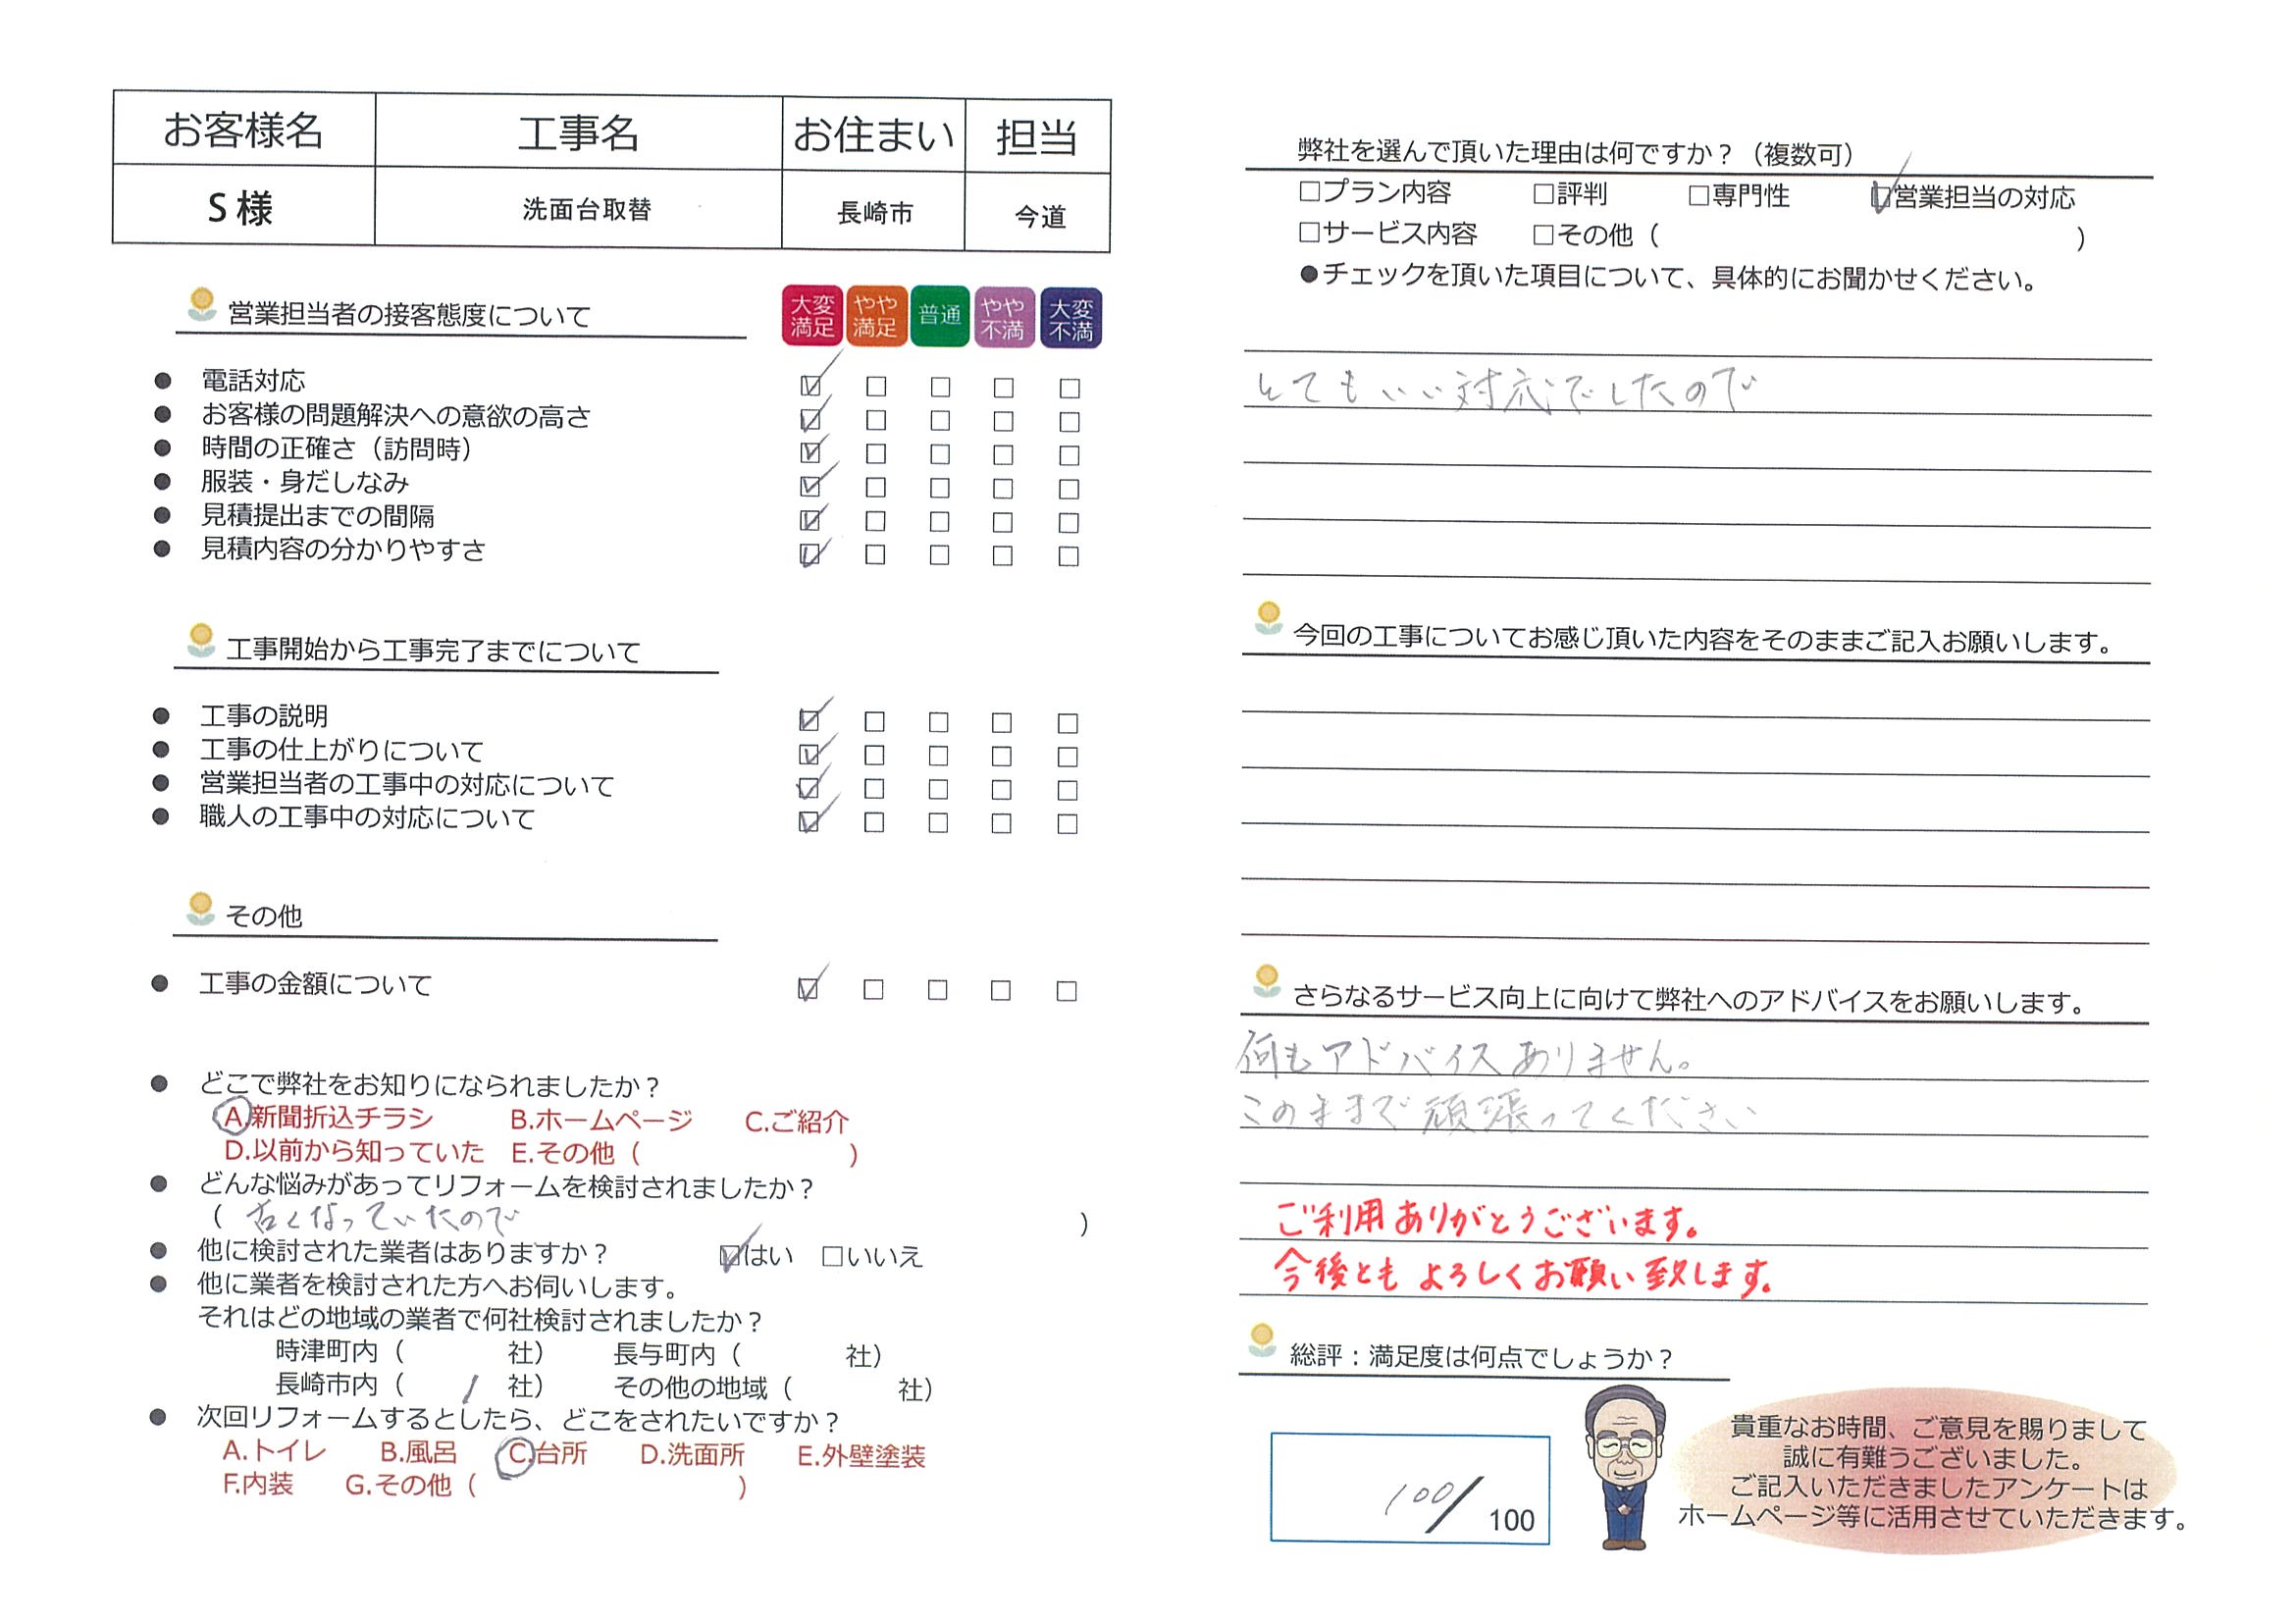 お客様名 工事名 お住まい 担当
S 様 洗面台取替 長崎市 今道
営業担当者の接客態度について 大変満足 やや満足 普通 やや不満 大変不満
● 電話対応 ☑ □ □ □ □
● お客様の問題解決への意欲の高さ ☑ □ □ □ □
● 時間の正確さ（訪問時） ☑ □ □ □ □
● 服装・身だしなみ ☑ □ □ □ □
● 見積提出までの間隔 ☑ □ □ □ □
● 見積内容の分かりやすさ ☑ □ □ □ □
工事開始から工事完了までについて
● 工事の説明 ☑ □ □ □ □
● 工事の仕上がりについて ☑ □ □ □ □
● 営業担当者の工事中の対応について ☑ □ □ □ □
● 職人の工事中の対応について ☑ □ □ □ □
その他
● 工事の金額について ☑ □ □ □ □
● どこで弊社をお知りになられましたか？
A.新聞折込チラシ B.ホームページ C.ご紹介
D.以前から知っていた E.その他（ ）
● どんな悩みがあってリフォームを検討されましたか？
（ 古くなっていたので ）
● 他に検討された業者はありますか？ ☑はい □いいえ
● 他に業者を検討された方へお伺いします。
それはどの地域の業者で何社検討されましたか？
時津町内（ 社） 長与町内（ 社）
長崎市内（ 1 社） その他の地域（ 社）
● 次回リフォームするとしたら、どこをされたいですか？
A.トイレ B.風呂 C.台所 D.洗面所 E.外壁塗装
F.内装 G.その他（ ）
弊社を選んで頂いた理由は何ですか？（複数可）
□プラン内容 □評判 □専門性 ☑営業担当の対応
□サービス内容 □その他（ ）
●チェックを頂いた項目について、具体的にお聞かせください。
とてもいい対応でしたので
今回の工事についてお感じ頂いた内容をそのままご記入お願いします。
さらなるサービス向上に向けて弊社へのアドバイスをお願いします。
何もアドバイスありません。
このままで頑張ってください
ご利用ありがとうございます。
今後ともよろしくお願い致します。
総評：満足度は何点でしょうか？
100/100
貴重なお時間、ご意見を賜りまして
誠に有難うございました。
ご記入いただきましたアンケートは
ホームページ等に活用させていただきます。